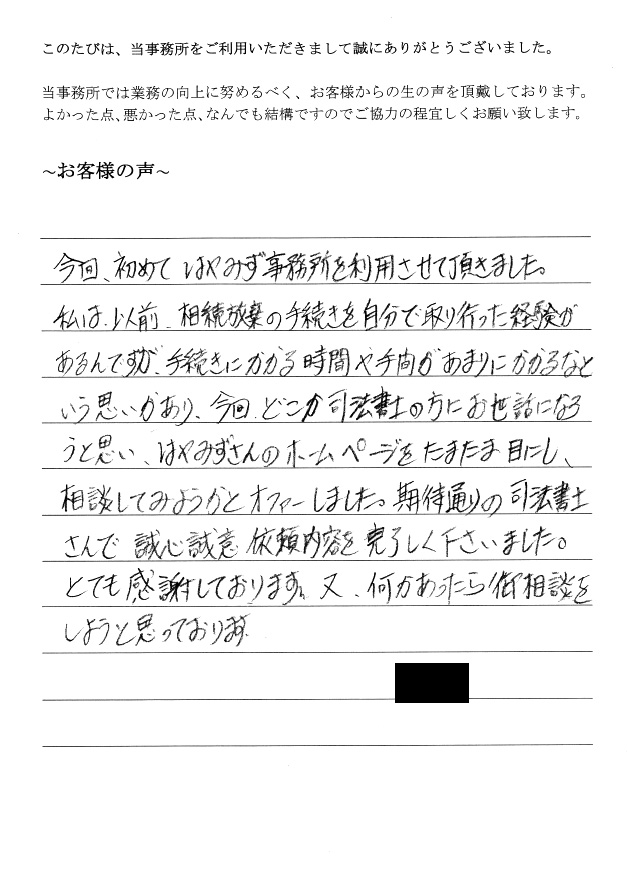 このたびは、当事務所をご利用いただきまして誠にありがとうございました。
当事務所では業務の向上に努めるべく、お客様からの生の声を頂戴しております。
よかった点、悪かった点、なんでも結構ですのでご協力の程宜しくお願い致します。
~お客様の声~
今回、初めて はやみず事務所を利用させて頂きました。
私は、以前、相続放棄の手続きを自分で取り行った経験が
あるんですが、手続きにかかる時間や手間があまりにかかるなと
いう思いがあり、今回、どこか司法書士の方にお世話になろ
うと思い、はやみずさんのホームページをたまたま目にし、
相談してみようかとオファーしました。期待通りの司法書士
さんで 誠心誠意 依頼内容を完了しく下さいました。
とても感謝しております。又、何かあったら御相談を
しようと思っております